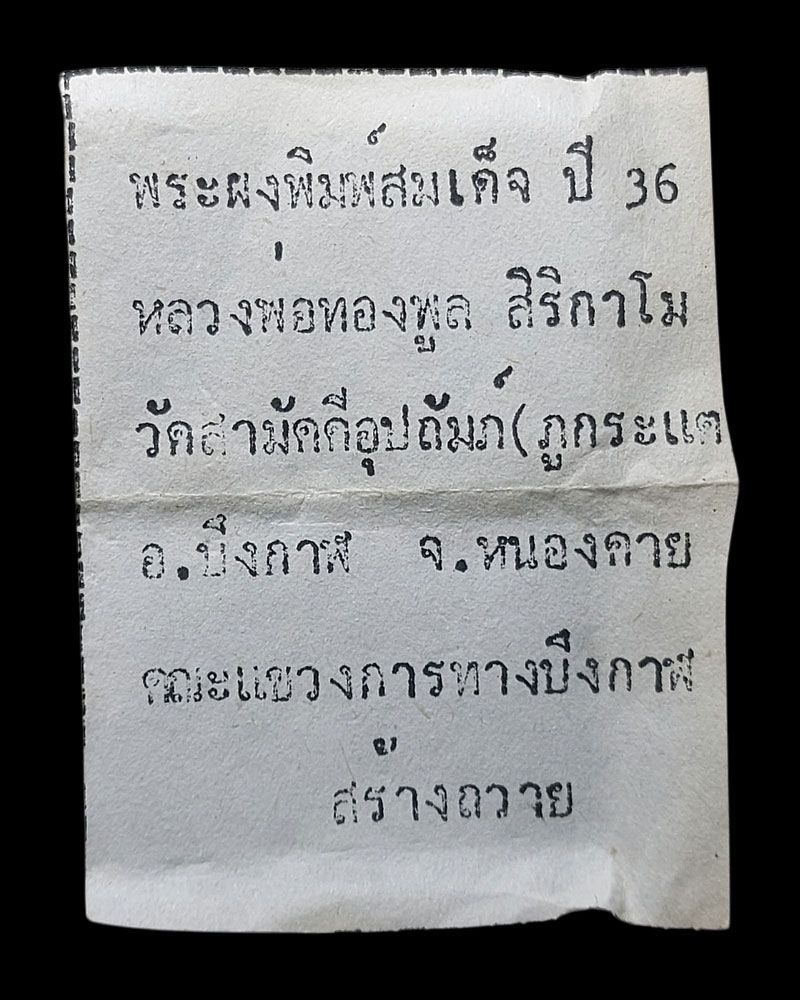 พระผงพิมพ์สมเด็จ ปี 36
หลวงพ่อทองพูล สิริกาโม
วัดสามัคคีอุปถัมภ์(ภูกระแต
อ.บึงกาฬ จ.หนองคาย
คณะแขวงการทางบึงกาฬ
สร้างถวาย